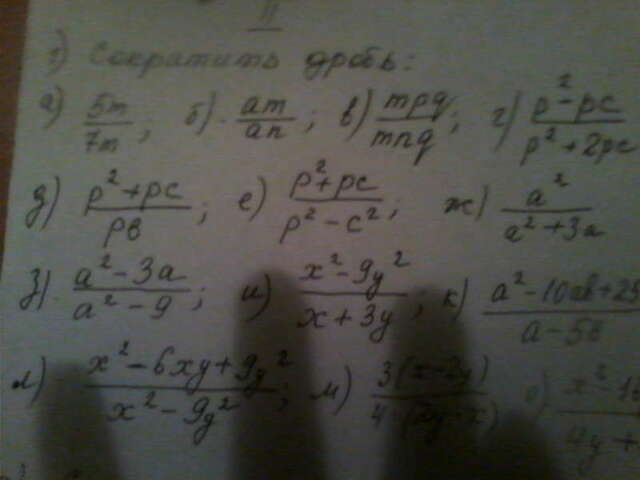 II
1) Сократить дробь:
а) 5m/7m; б) am/an; в) mpq/mnq; г) p²-pc/p²+2pc
д) p²+pc/pв; е) p²+pc/p²-c²; ж) a²/a²+3a
з) a²-3a/a²-9; и) x²-9y²/x+3y; к) a²-10ab+25/a-5b
л) x²-6xy+9y²/x²-9y²; м) 3(x-2y)/4(2y-x) о) x²/9y+